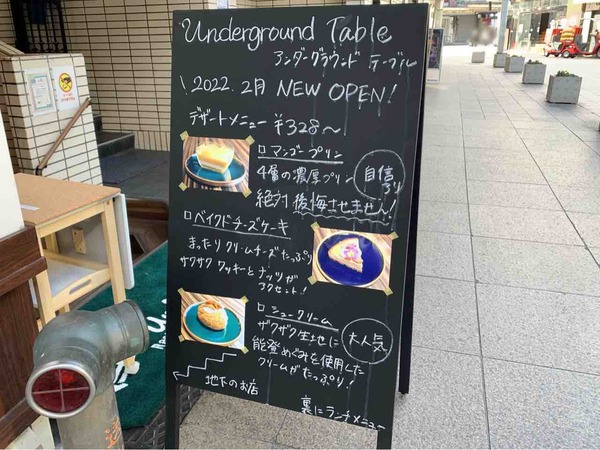 Underground Table
アンダーグラウンド テーブル
\ 2022. 2月 NEW OPEN! /
デザートメニュー ¥328〜
ロ マンゴープリン
4層の濃厚プリン
自信アリ
絶対後悔させません!
ロ ベイクドチーズケーキ
まったりクリームチーズたっぷり
サクサククッキーとナッツが
アクセント!
ロ シュークリーム
ザクザク生地に
能登めぐみを使用した
クリームがたっぷり!
大人気
地下のお店
裏にランチメニュー